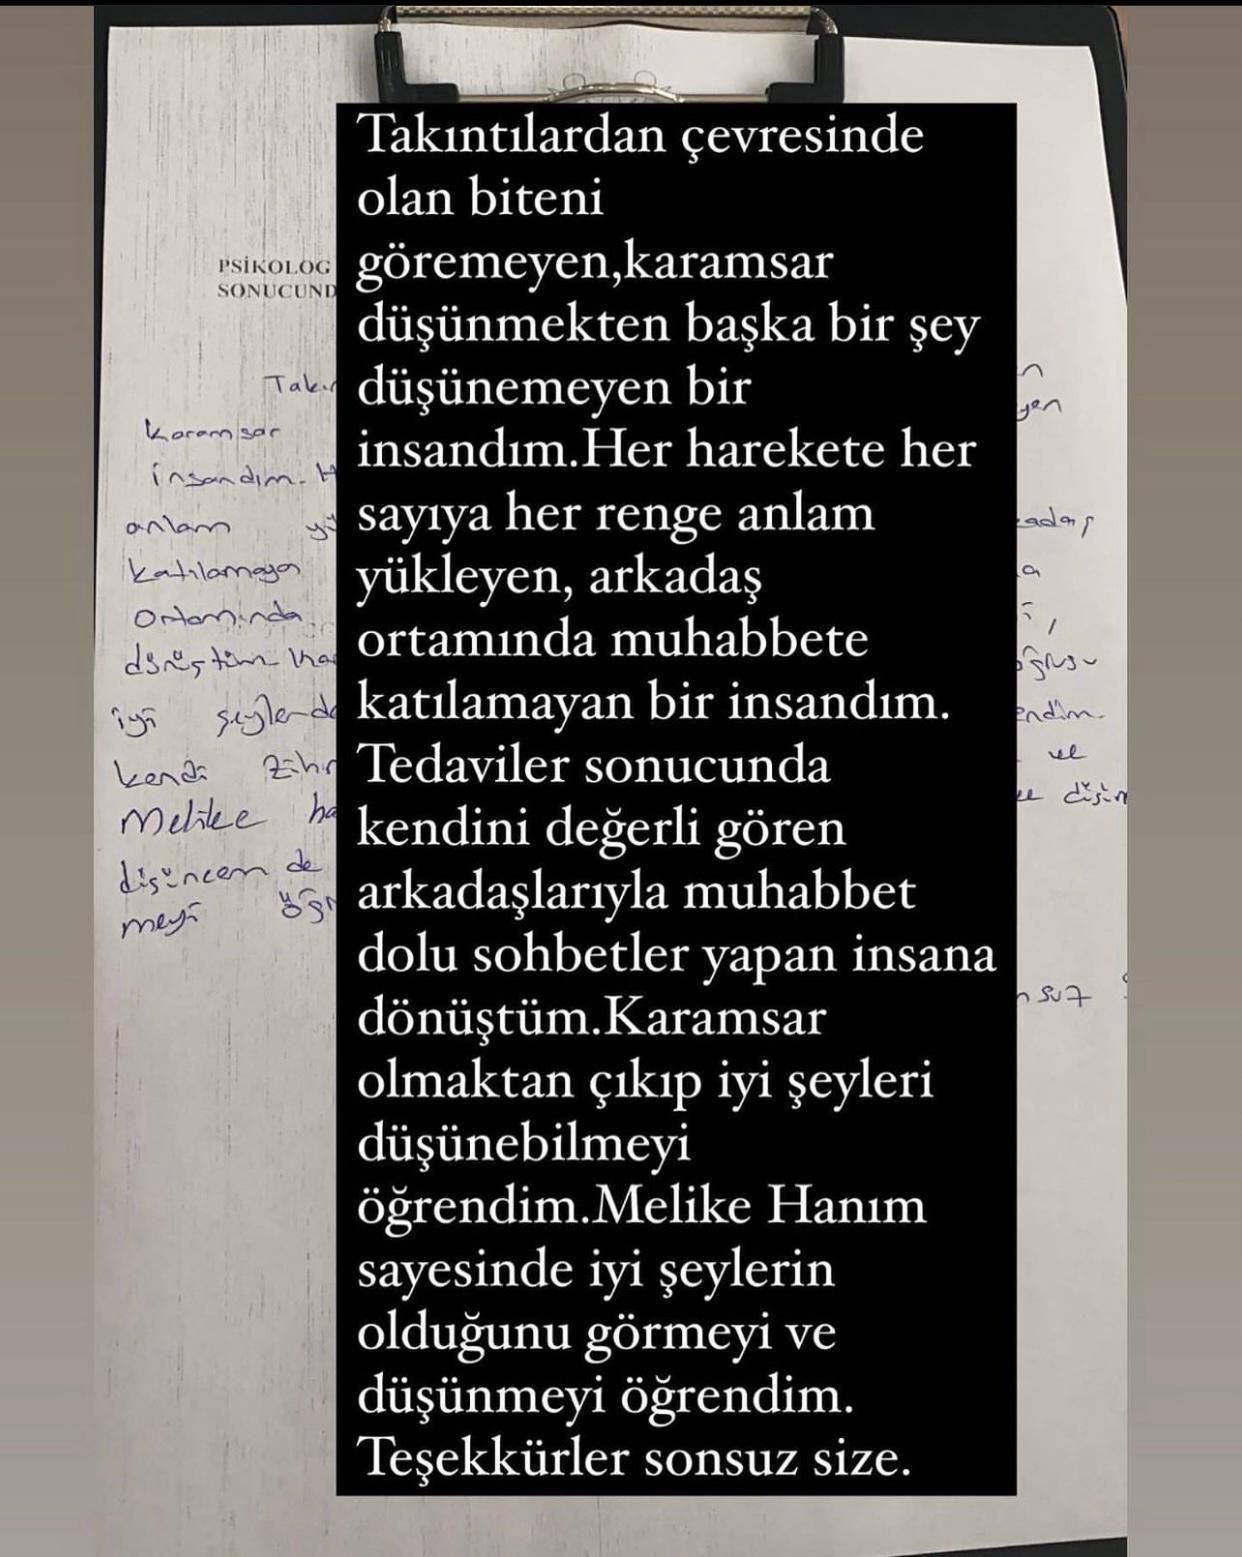 PSİKOLOG
SONUCUND
Takıntılardan çevresinde
olan biteni
göremeyen,karamsar
düşünmekten başka bir şey
düşünemeyen bir
insandım.Her harekete her
sayıya her renge anlam
yükleyen, arkadaş
ortamında muhabbete
katılamayan bir insandım.
Tedaviler sonucunda
kendini değerli gören
arkadaşlarıyla muhabbet
dolu sohbetler yapan insana
dönüştüm.Karamsar
olmaktan çıkıp iyi şeyleri
düşünebilmeyi
öğrendim.Melike Hanım
sayesinde iyi şeylerin
olduğunu görmeyi ve
düşünmeyi öğrendim.
Teşekkürler sonsuz size.
Karamsar
insandım.
anlam
katılamayan
ortamında
dönüştüm
iyi
kendi
Melike
düşüncem de
meyi
ve